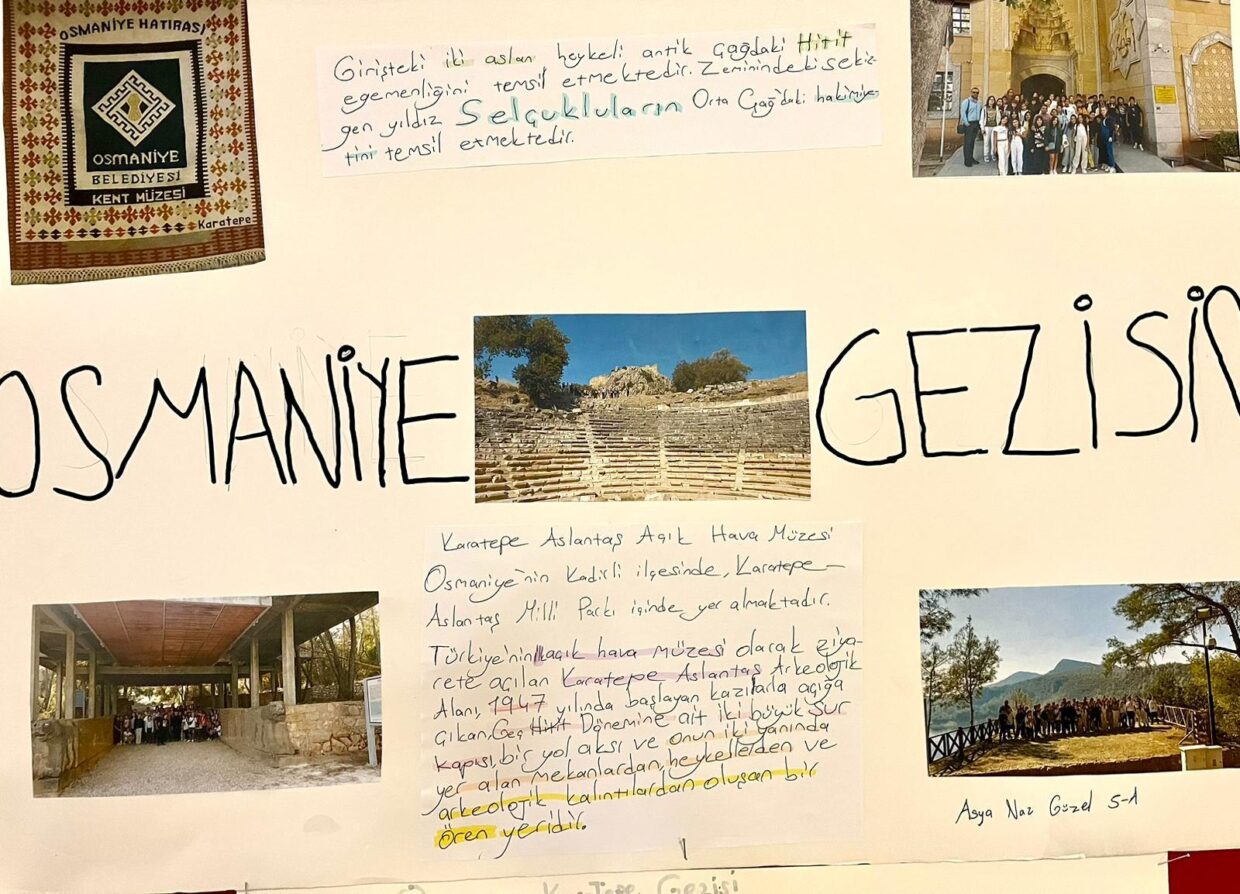 OSMANİYE HATIRASI
OSMANİYE
BELEDİYESİ
KENT MÜZESİ
Karatepe
Girişteki iki aslan heykeli antik çağdaki Hitit
egemenliğini temsil etmektedir. Zeminindeki sekiz-
gen yıldız Selçukluların Orta Çağ'daki hakimiye-
tini temsil etmektedir.
OSMANİYE GEZİSİN
Karatepe Aslantaş Açık Hava Müzesi
Osmaniye'nin Kadirli ilçesinde, Karatepe-
Aslantaş Milli Parkı içinde yer almaktadır.
Türkiye'nin açık hava müzesi olarak ziya-
rete açılan Karatepe Aslantaş Arkeolojik
Alanı, 1947 yılında başlayan kazılarla açığa
çıkan, Geç Hitit Dönemine ait iki büyük sur
kapısı, bir yol aksı ve onun iki yanında
yer alan mekanlardan, heykellerden ve
arkeolojik kalıntılardan oluşan bir
ören yeridir.
Asya Naz Güzel 5-A
Gezisi